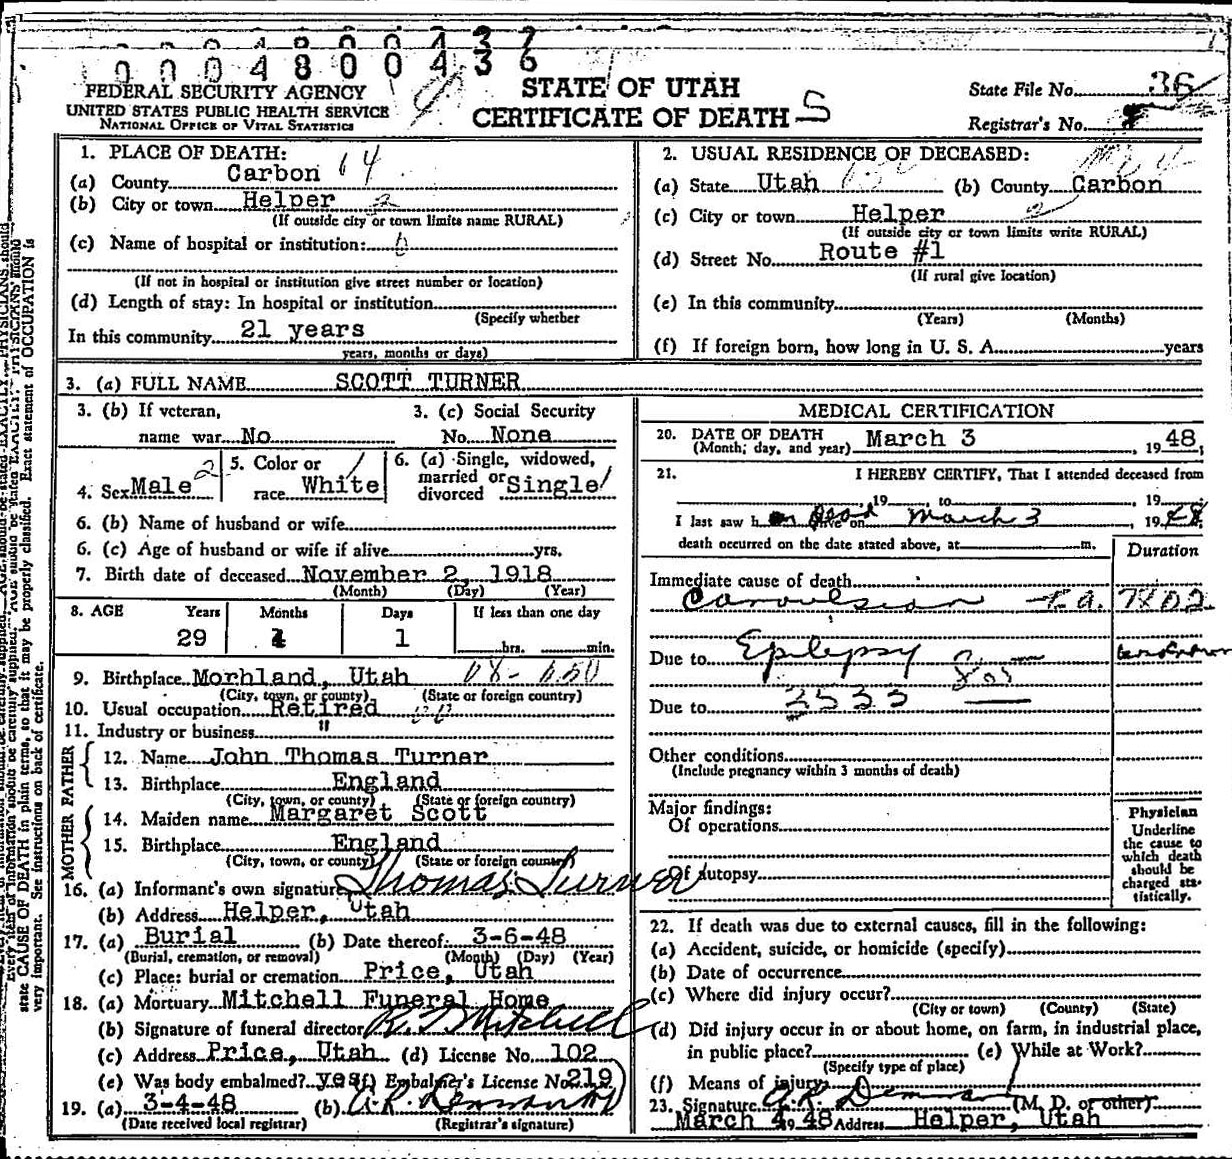 00048004 37
0004800436
FEDERAL SECURITY AGENCY
UNITED STATES PUBLIC HEALTH SERVICE
NATIONAL OFFICE OF VITAL STATISTICS
STATE OF UTAH
CERTIFICATE OF DEATH S
State File No. 36
Registrar's No.
1. PLACE OF DEATH:
(a) County Carbon 14
(b) City or town Helper 2
(If outside city or town limits name RURAL)
(c) Name of hospital or institution:
(If not in hospital or institution give street number or location)
(d) Length of stay: In hospital or institution
(Specify whether
In this community 21 years
years, months or days)
2. USUAL RESIDENCE OF DECEASED:
(a) State Utah (b) County Carbon
(c) City or town Helper 2
(If outside city or town limits write RURAL)
(d) Street No. Route #1
(If rural give location)
(e) In this community
(Years) (Months)
(f) If foreign born, how long in U. S. A. years
3. (a) FULL NAME SCOTT TURNER
3. (b) If veteran,
name war No
3. (c) Social Security
No. None
4. Sex Male 2
5. Color or
race White 1
6. (a) Single, widowed,
married or
divorced Single 1
6. (b) Name of husband or wife
6. (c) Age of husband or wife if alive yrs.
7. Birth date of deceased November 2, 1918
(Month) (Day) (Year)
8. AGE Years Months Days If less than one day
29 4 1 hrs. min.
9. Birthplace Morhland, Utah
(City, town, or county) (State or foreign country)
10. Usual occupation Retired
11. Industry or business "
FATHER
12. Name John Thomas Turner
13. Birthplace England
(City, town, or county) (State or foreign country)
MOTHER
14. Maiden name Margaret Scott
15. Birthplace England
(City, town, or county) (State or foreign country)
16. (a) Informant's own signature Thomas Turner
(b) Address Helper, Utah
17. (a) Burial (b) Date thereof 3-6-48
(Burial, cremation, or removal) (Month) (Day) (Year)
(c) Place: burial or cremation Price, Utah
18. (a) Mortuary Mitchell Funeral Home
(b) Signature of funeral director Mitchell
(c) Address Price, Utah (d) License No. 102
(e) Was body embalmed? yes (f) Embalmer's License No. 219
19. (a) 3-4-48 (b)
(Date received local registrar) (Registrar's signature)
MEDICAL CERTIFICATION
20. DATE OF DEATH March 3 1948
(Month, day, and year)
21. I HEREBY CERTIFY, That I attended deceased from
19 , to , 19
I last saw h dead alive on March 3, 1948
death occurred on the date stated above, at m.
Duration
Immediate cause of death
Convulsion
Due to Epilepsy unknown
Due to 3533
Other conditions
(Include pregnancy within 3 months of death)
Major findings:
Of operations
Of autopsy
Physician
Underline
the cause to
which death
should be
charged sta-
tistically.
22. If death was due to external causes, fill in the following:
(a) Accident, suicide, or homicide (specify)
(b) Date of occurrence
(c) Where did injury occur?
(City or town) (County) (State)
(d) Did injury occur in or about home, on farm, in industrial place,
in public place? (e) While at Work?
(Specify type of place)
(f) Means of injury
23. Signature (M. D. or other)
March 4, 1948 Address Helper, Utah
state CAUSE OF DEATH in plain terms, so that it may be properly classified. Exact statement of OCCUPATION is
very important. See instructions on back of certificate.